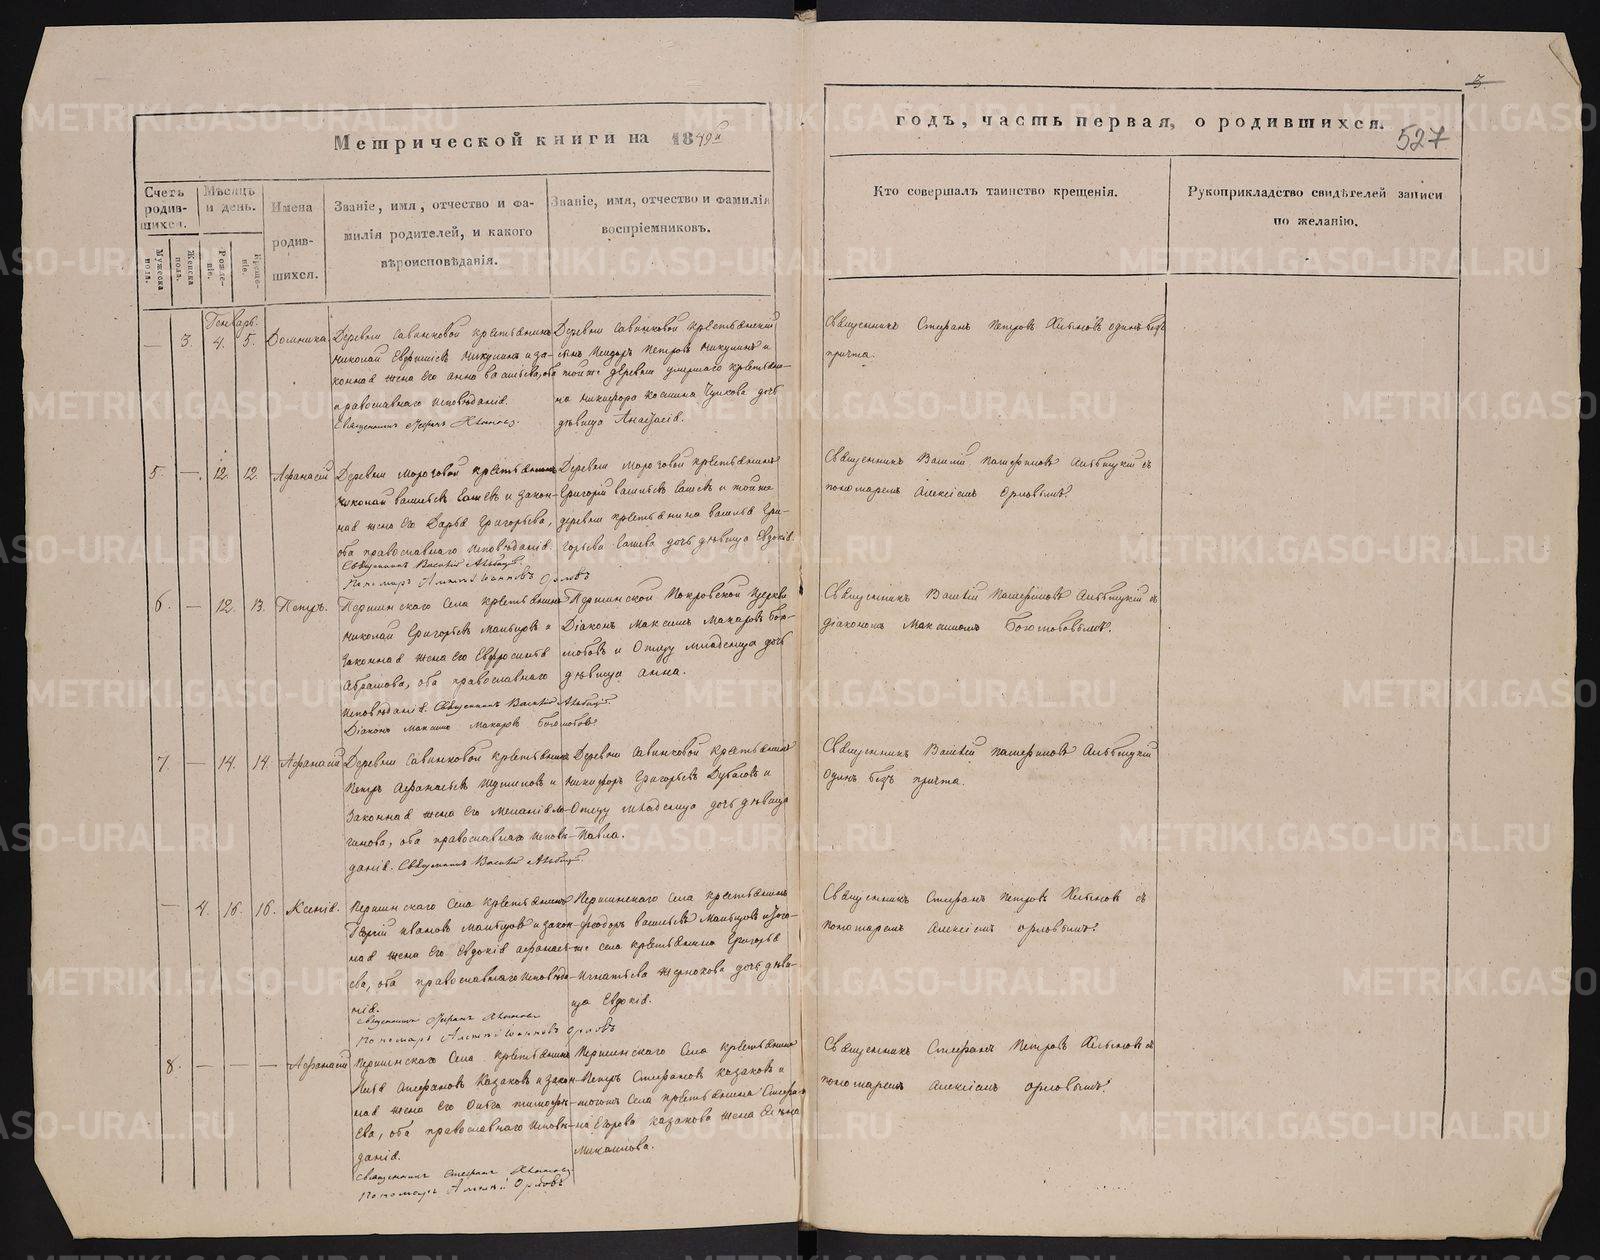 Метрической книги на 1849й
годъ, часть первая, о родившихся.
527
Счетъ родив-шихся.
Мужеска пола.
Женска пола.
Мѣсяцъ и день.
Рожде-ніе.
Креще-ніе.
Имена родив-шихся.
Званіе, имя, отчество и фа-
милія родителей, и какого
вѣроисповѣданія.
Званіе, имя, отчество и фамилія
воспріемниковъ.
Кто совершалъ таинство крещенія.
Рукоприкладство свидѣтелей записи
по желанію.
Генварь.
— 3. 4. 5. Домника.
Деревни Савинковой крестьянинъ
Николай Никулинъ и за-
конная жена его Анна Васильева, оба
православнаго исповѣданія.
Священникъ Стефанъ Хлыновъ.
Деревни Савинковой крестьянскій
сынъ Петровъ Никулинъ и
той же деревни умершаго крестьяни-
на Никифора Космина Чулкова дочь
дѣвица Анастасія.
Священникъ Стефанъ Петровъ Хлыновъ одинъ безъ
причта.
5. — 12. 12. Афанасій
Деревни крестьянинъ
Николай Васильевъ и закон-
ная жена его Дарья Григорьева,
оба православнаго исповѣданія.
Священникъ Василій
Пономарь Алексѣй Іоанновъ Орловъ
Деревни крестьянинъ
Григорій Васильевъ и той же
деревни крестьянина Василья Гри-
горьева дочь дѣвица Евдокія.
Священникъ Василій съ
пономаремъ Алексіемъ Орловымъ.
6. — 12. 13. Петръ.
Першинскаго Села крестьянинъ
Николай Григорьевъ Мальцовъ и
законная жена его Евфросинья
Абрамова, оба православнаго
исповѣданія. Священникъ Василій
Діаконъ Максимъ Макаровъ Боголюбовъ
Першинской Покровской Церкви
Діаконъ Максимъ Макаровъ Бого-
любовъ и Отцу младенца дочь
дѣвица Анна.
Священникъ Василій съ
діакономъ Максимомъ Боголюбовымъ.
7. — 14. 14. Афанасій
Деревни Савинковой крестьянинъ
Петръ Афанасьевъ и
законная жена его Меланія Ло-
гинова, оба православнаго исповѣ-
данія. Священникъ Василій
Деревни Савинковой крестьянинъ
Никифоръ Григорьевъ и
Отцу младенца дочь дѣвица
Павла.
Священникъ Василій
одинъ безъ причта.
— 4. 16. 16. Ксенія.
Першинскаго Села крестьянинъ
Георгій Ивановъ Мальцовъ и закон-
ная жена его Евдокія Афанасье-
ва, оба православнаго исповѣда-
нія.
Священникъ Стефанъ Хлыновъ
Пономарь Алексѣй Іоанновъ Орловъ
Першинскаго Села крестьянинъ
Феодоръ Васильевъ Мальцовъ и того-
же села крестьянина Григорья
Игнатьева дочь дѣви-
ца Евдокія.
Священникъ Стефанъ Петровъ Хлыновъ съ
пономаремъ Алексіемъ Орловымъ.
8. — — — Афанасій
Першинскаго Села крестьянинъ
Стефановъ Казаковъ и закон-
ная жена его Ольга Тимофе-
ева, оба православнаго исповѣ-
данія.
Священникъ Стефанъ Хлыновъ
Пономарь Алексѣй Орловъ
Першинскаго Села крестьянинъ
Петръ Стефановъ Казаковъ и
тогожъ Села крестьянина Стефа-
на Егорова Казакова жена Елена
Михаилова.
Священникъ Стефанъ Петровъ Хлыновъ съ
пономаремъ Алексіемъ Орловымъ.
METRIKI.GASO-URAL.RU